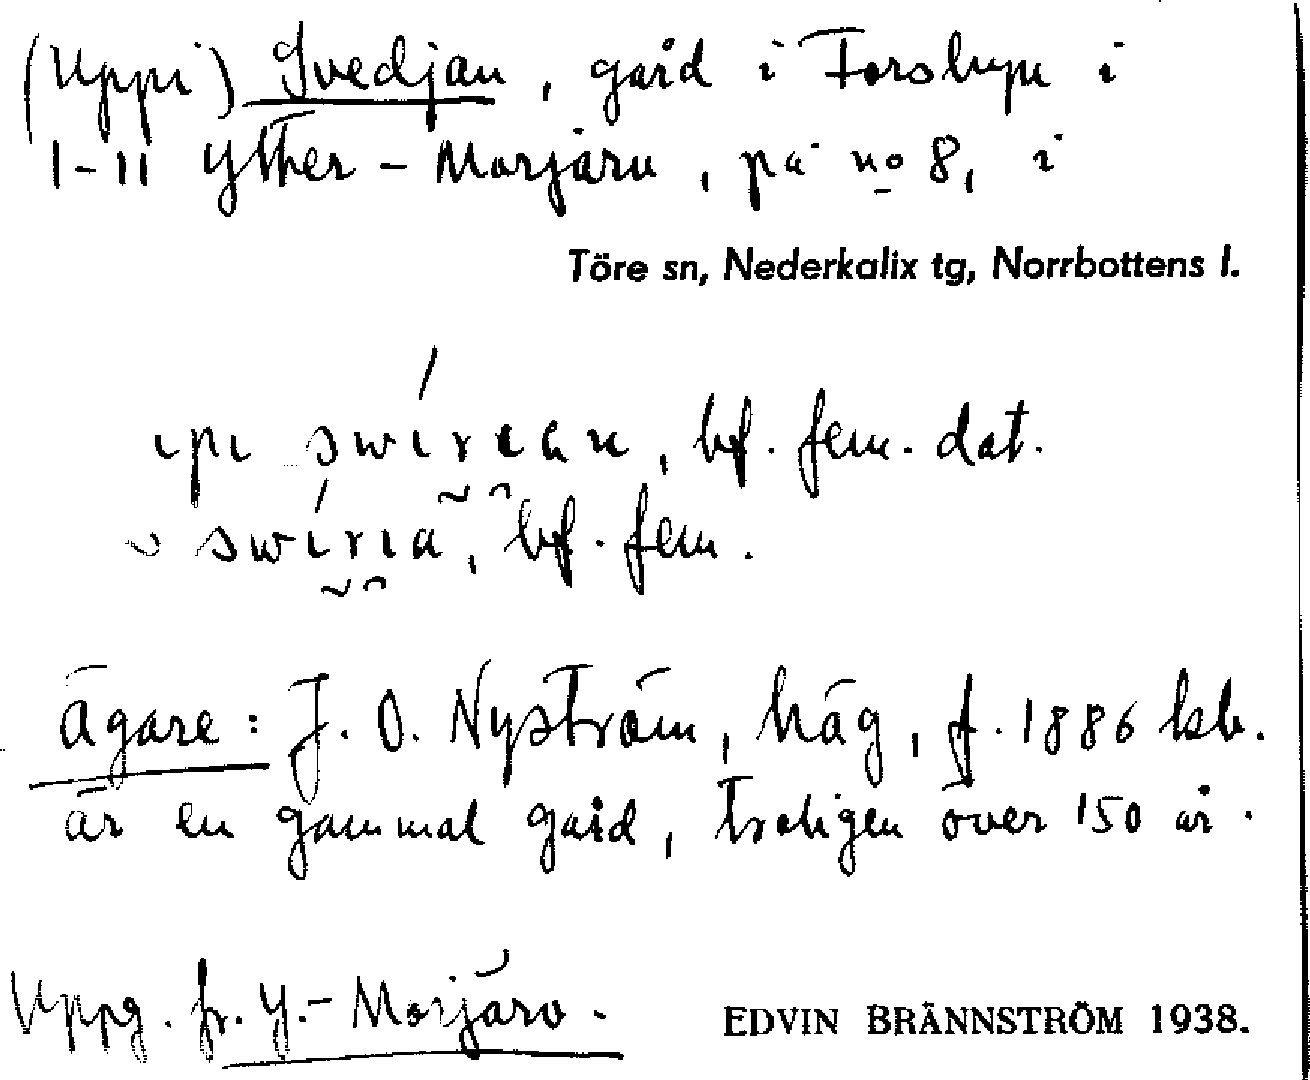 (Uppi) Svedjan, gård i Forsbyn i
1-11 Ytter-Morjärv, på no 8, i
Töre sn, Nederkalix tg, Norrbottens l.
ɩpɩ swírɩan, bf. fem. dat.
swírɩa, bf. fem.
Ägare: J. O. Nyström, häg, f. 1886
är en gammal gård, troligen över 150 år.
Uppg. fr. Y.-Morjärv.
EDVIN BRÄNNSTRÖM 1938.